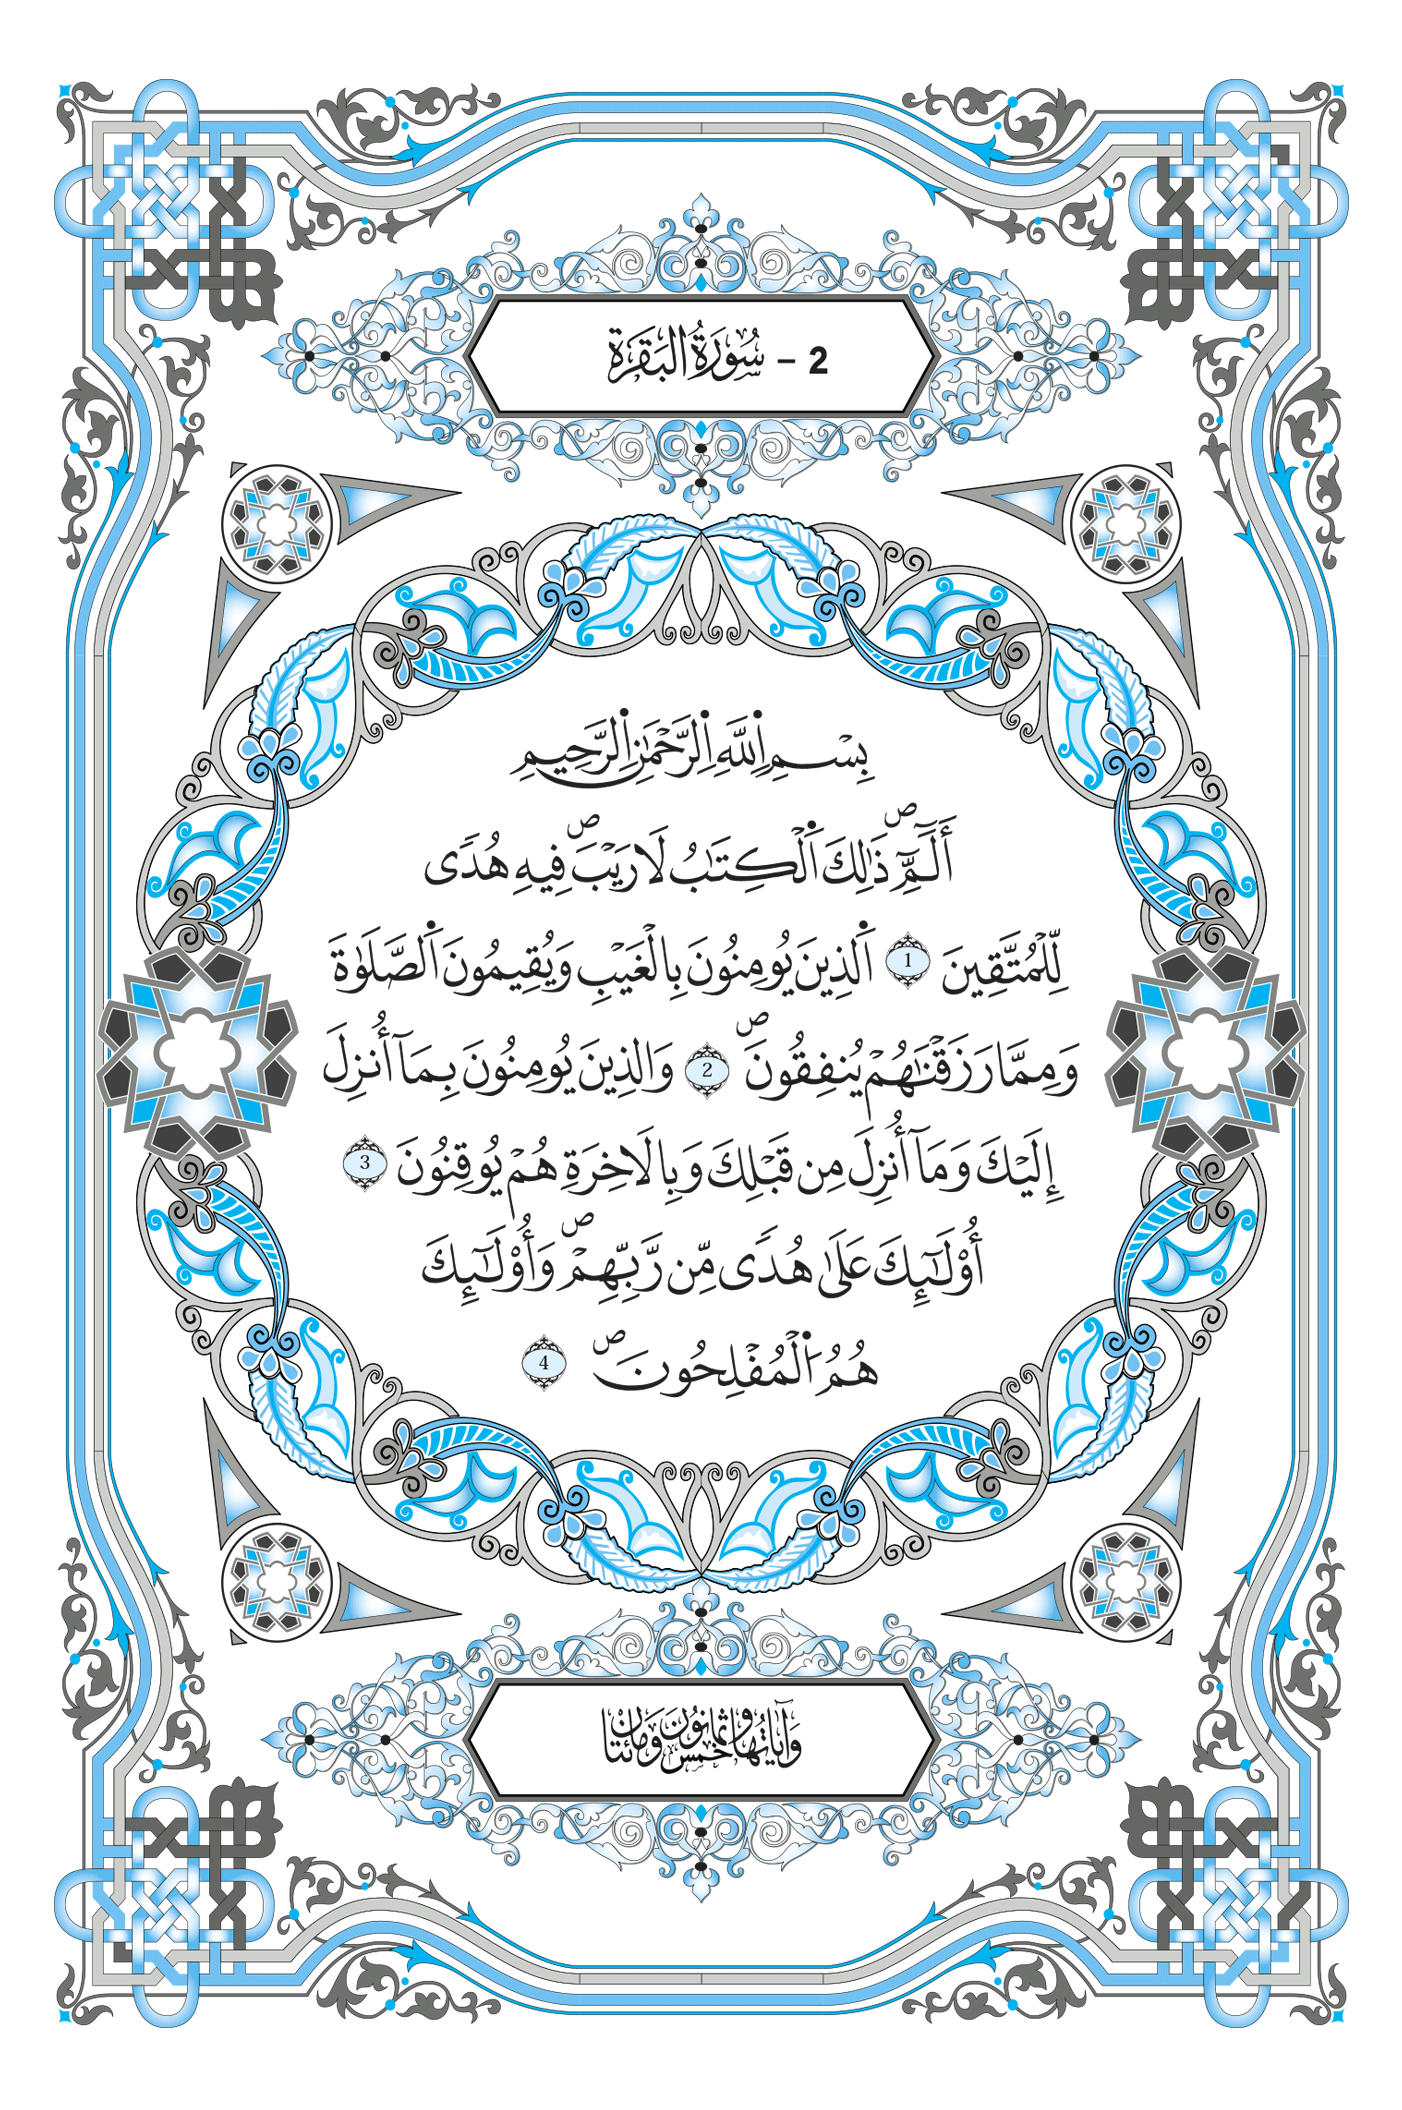 2 – سُورَةُ البَقَرَة
بِسْمِ اِ۬للَّهِ اِ۬لرَّحْمَٰنِ اِ۬لرَّحِيمِ
أَلَٓمِّٓۖ ذَٰلِكَ اَ۬لْكِتَٰبُ لَا رَيْبَۖ فِيهِ هُدًى
لِّلْمُتَّقِينَ 1 اَ۬لذِينَ يُومِنُونَ بِالْغَيْبِ وَيُقِيمُونَ اَ۬لصَّلَوٰةَ
وَمِمَّا رَزَقْنَٰهُمْ يُنفِقُونَۖ 2 وَالذِينَ يُومِنُونَ بِمَآ أُنزِلَ
إِلَيْكَ وَمَآ أُنزِلَ مِن قَبْلِكَ وَبِالَاخِرَةِ هُمْ يُوقِنُونَ 3
أُوْلَٰٓئِكَ عَلَىٰ هُدًى مِّن رَّبِّهِمْۖ وَأُوْلَٰٓئِكَ
هُمُ اُ۬لْمُفْلِحُونَۖ 4
وَآيَاتُهَا خَمْسٌ وَثَمَانُونَ وَمَائَتَانِ